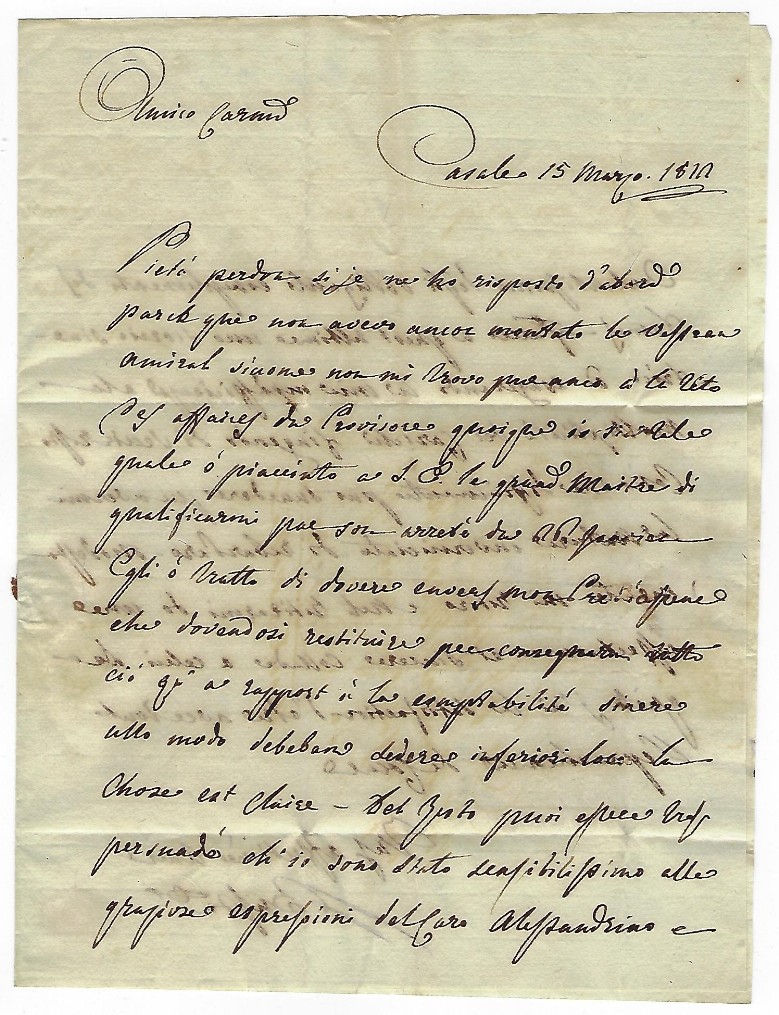 Amico Carmo
Casale 15 Marzo. 1811
Pietà perdon si je ne ho risposto d'abord
parce que non avevo ancor montato le Vesseau
amiral sicome non mi trovo pur anco à la tête
des affaires da Provisore quoique io sia tale
quale è piacciuto a S. E. le grand Maitre di
qualificarmi par son arreté du Janvier
Egli è tratto di dovere envers mon
che dovendosi restituire per consegnarmi tutto
ciò qu' a rapport à la comptabilité sincere
ullo modo debebam cedere inferiori loco la
Chose est Claire – Del Resto puoi essere tres
persuadé ch' io sono stato sensibilissimo alle
graziose espressioni del Caro Alessandrino e